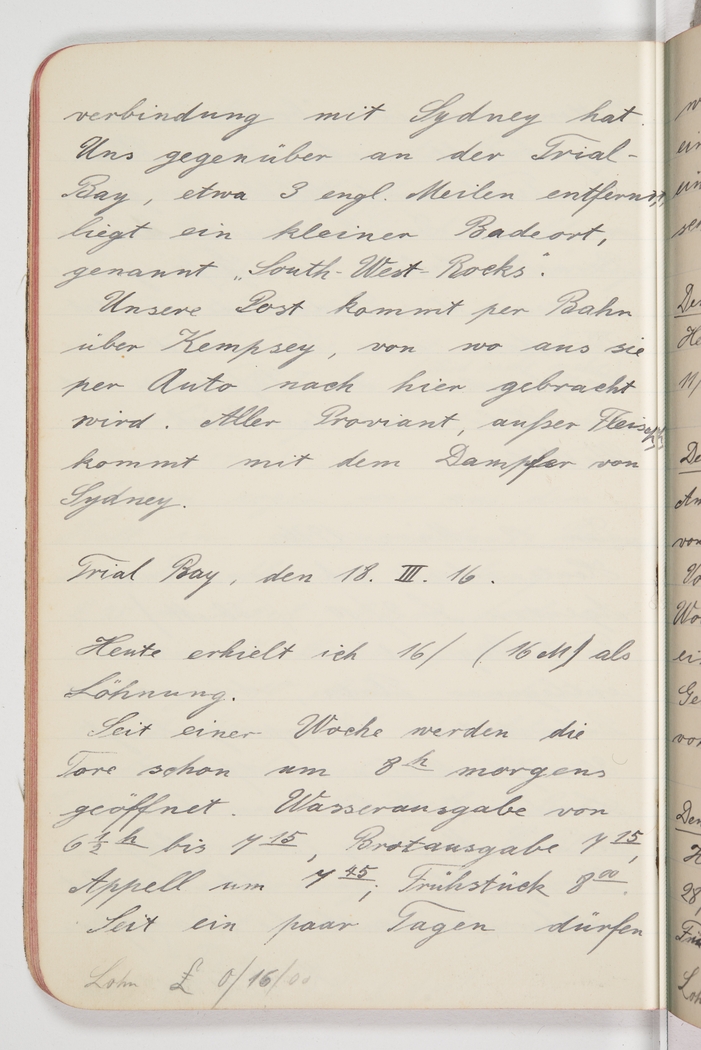 verbindung mit Sydney hat.
Uns gegenüber an der Trial-
Bay, etwa 3 engl. Meilen entfernt,
liegt ein kleiner Badeort,
genannt „South-West-Rocks".
Unsere Post kommt per Bahn
über Kempsey, von wo aus sie
per Auto nach hier gebracht
wird. Aller Proviant, außer Fleisch,
kommt mit dem Dampfer von
Sydney.
Trial Bay, den 18. III. 16.
Heute erhielt ich 16/ (16 M) als
Löhnung.
Seit einer Woche werden die
Tore schon um 8h morgens
geöffnet. Wasserausgabe von
6 1/2 h bis 7 15, Brotausgabe 7 15,
Appell um 7 45; Frühstück 8 00.
Seit ein paar Tagen dürfen
Lohn £ 0/16/00